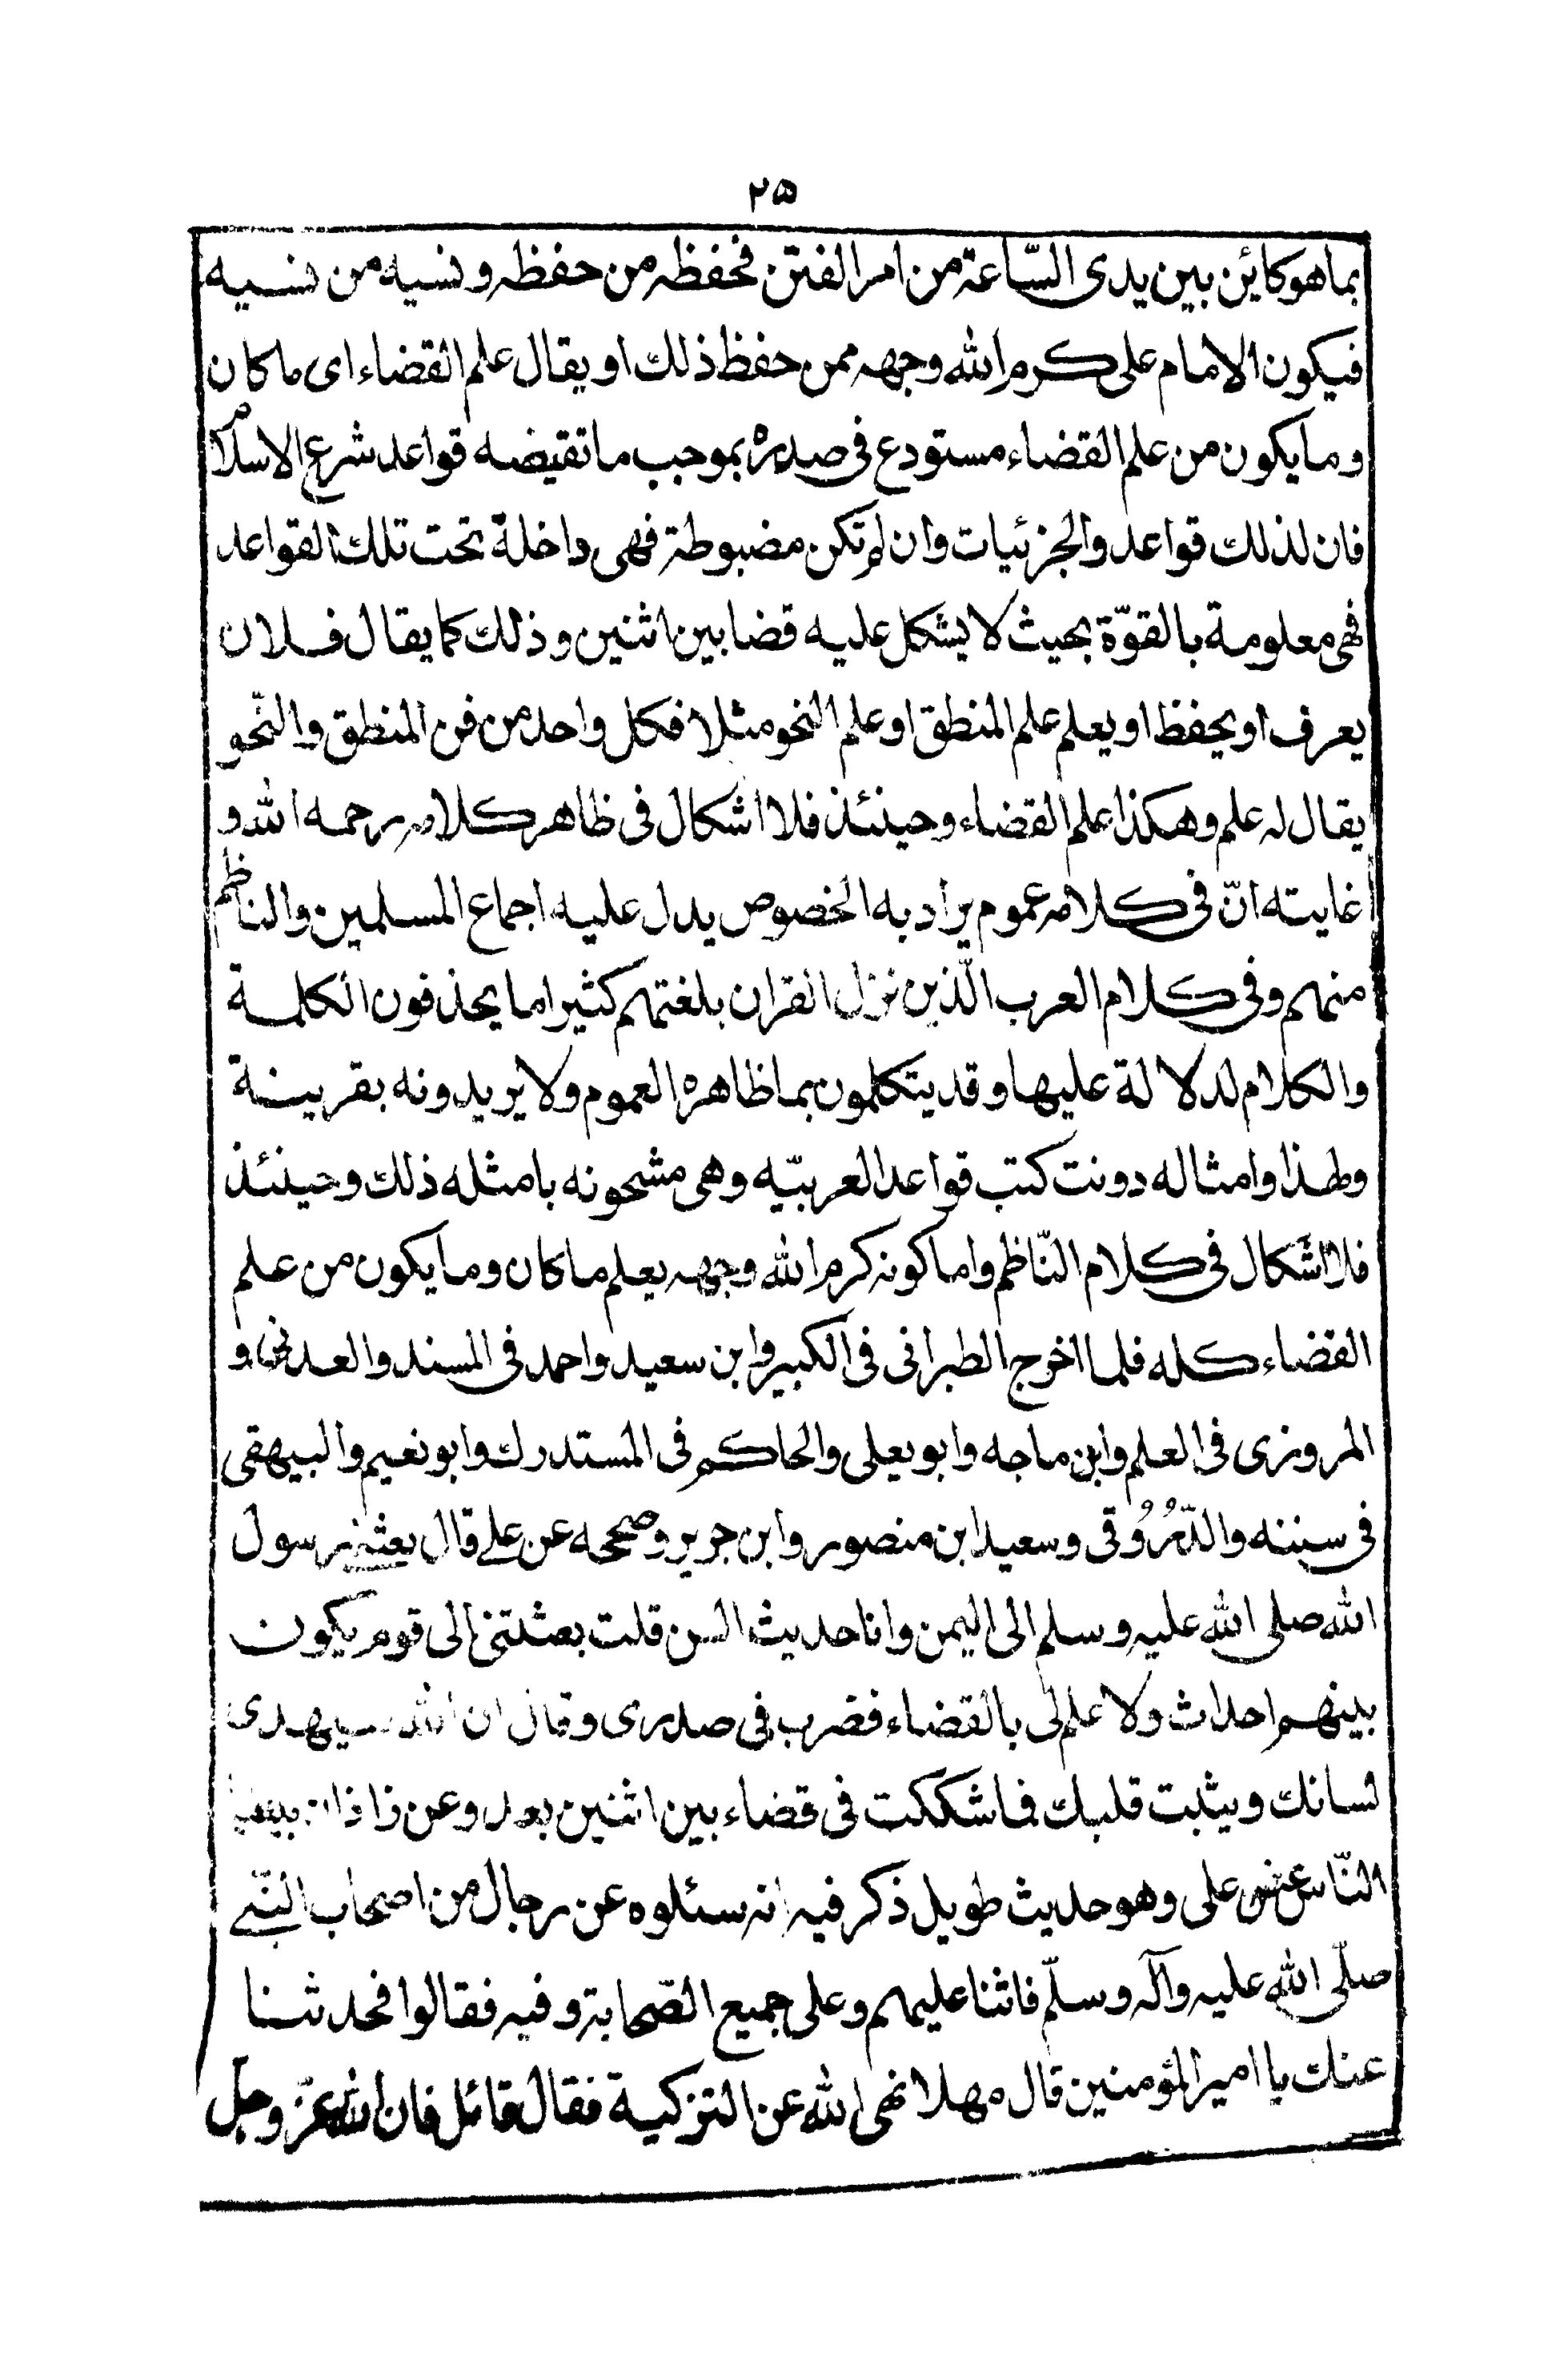 ٢٥
بما هو كائن بين يدى السّاعة من امر الفتن فحفظه من حفظه ونسيه من نسيه
فيكون الامام على كرم الله وجهه ممن حفظ ذلك او يقال علم القضاء اى ما كان
وما يكون من علم القضاء مستودع فى صدره بموجب ما تقيضه قواعد شرع الاسلام
فان لذلك قواعد والجزئيات وان لم تكن مضبوطة فهى داخلة تحت تلك القواعد
فهى معلومة بالقوّة بحيث لا يشكل عليه قضا بين اثنين وذلك كما يقال فلان
يعرف او يحفظ او يعلم علم المنطق او علم النحو مثلا فكل واحد من فن المنطق والنّحو
يقال له علم وهكذا علم القضاء وحينئذ فلا اشكال فى ظاهر كلامه رحمه الله و
غايته انّ فى كلامه عموم يراد به الخصوص يدل عليه اجماع المسلمين والناظم
منهم وفى كلام العرب الّذين نزل القران بلغتهم كثيرا ما يحذفون الكلمة
والكلام لدلالة عليها وقد يتكلمون بما ظاهره العموم ولا يريدونه بقرينة
ولهذا وامثاله دونت كتب قواعد العربيّه وهى مشحونه بامثله ذلك وحينئذ
فلا اشكال فى كلام النّاظم واما كونه كرم الله وجهه يعلم ما كان وما يكون من علم
القضاء كله فلما اخرج الطبرانى فى الكبير وابن سعيد واحمد فى المسند والعدنى و
المروزى فى العلم وابن ماجه وابو يعلى والحاكم فى المستدرك وابو نعيم والبيهقى
فى سننه والدّرُوُقى وسعيد ابن منصور وابن جرير وصححه عن على قال بعثنى رسول
الله صلى الله عليه وسلم الى اليمن وانا حديث السن قلت بعثتنى الى قوم يكون
بينهم احداث ولا علم لى بالقضاء فضرب فى صدرى وقال ان الله سيهدى
لسانك ويثبت قلبك فما شككت فى قضاء بين اثنين بعد وعن زاذان
النّاس على وهو حديث طويل ذكر فيه انه سئلوه عن رجال من اصحاب النّبى
صلّى الله عليه وآله وسلّم فاثنا عليهم وعلى جميع الصّحابة وفيه فقالوا فحدثنا
عنك يا امير المؤمنين قال مهلا نهى الله عن التزكية فقال قائل فان الله عزّ وجل